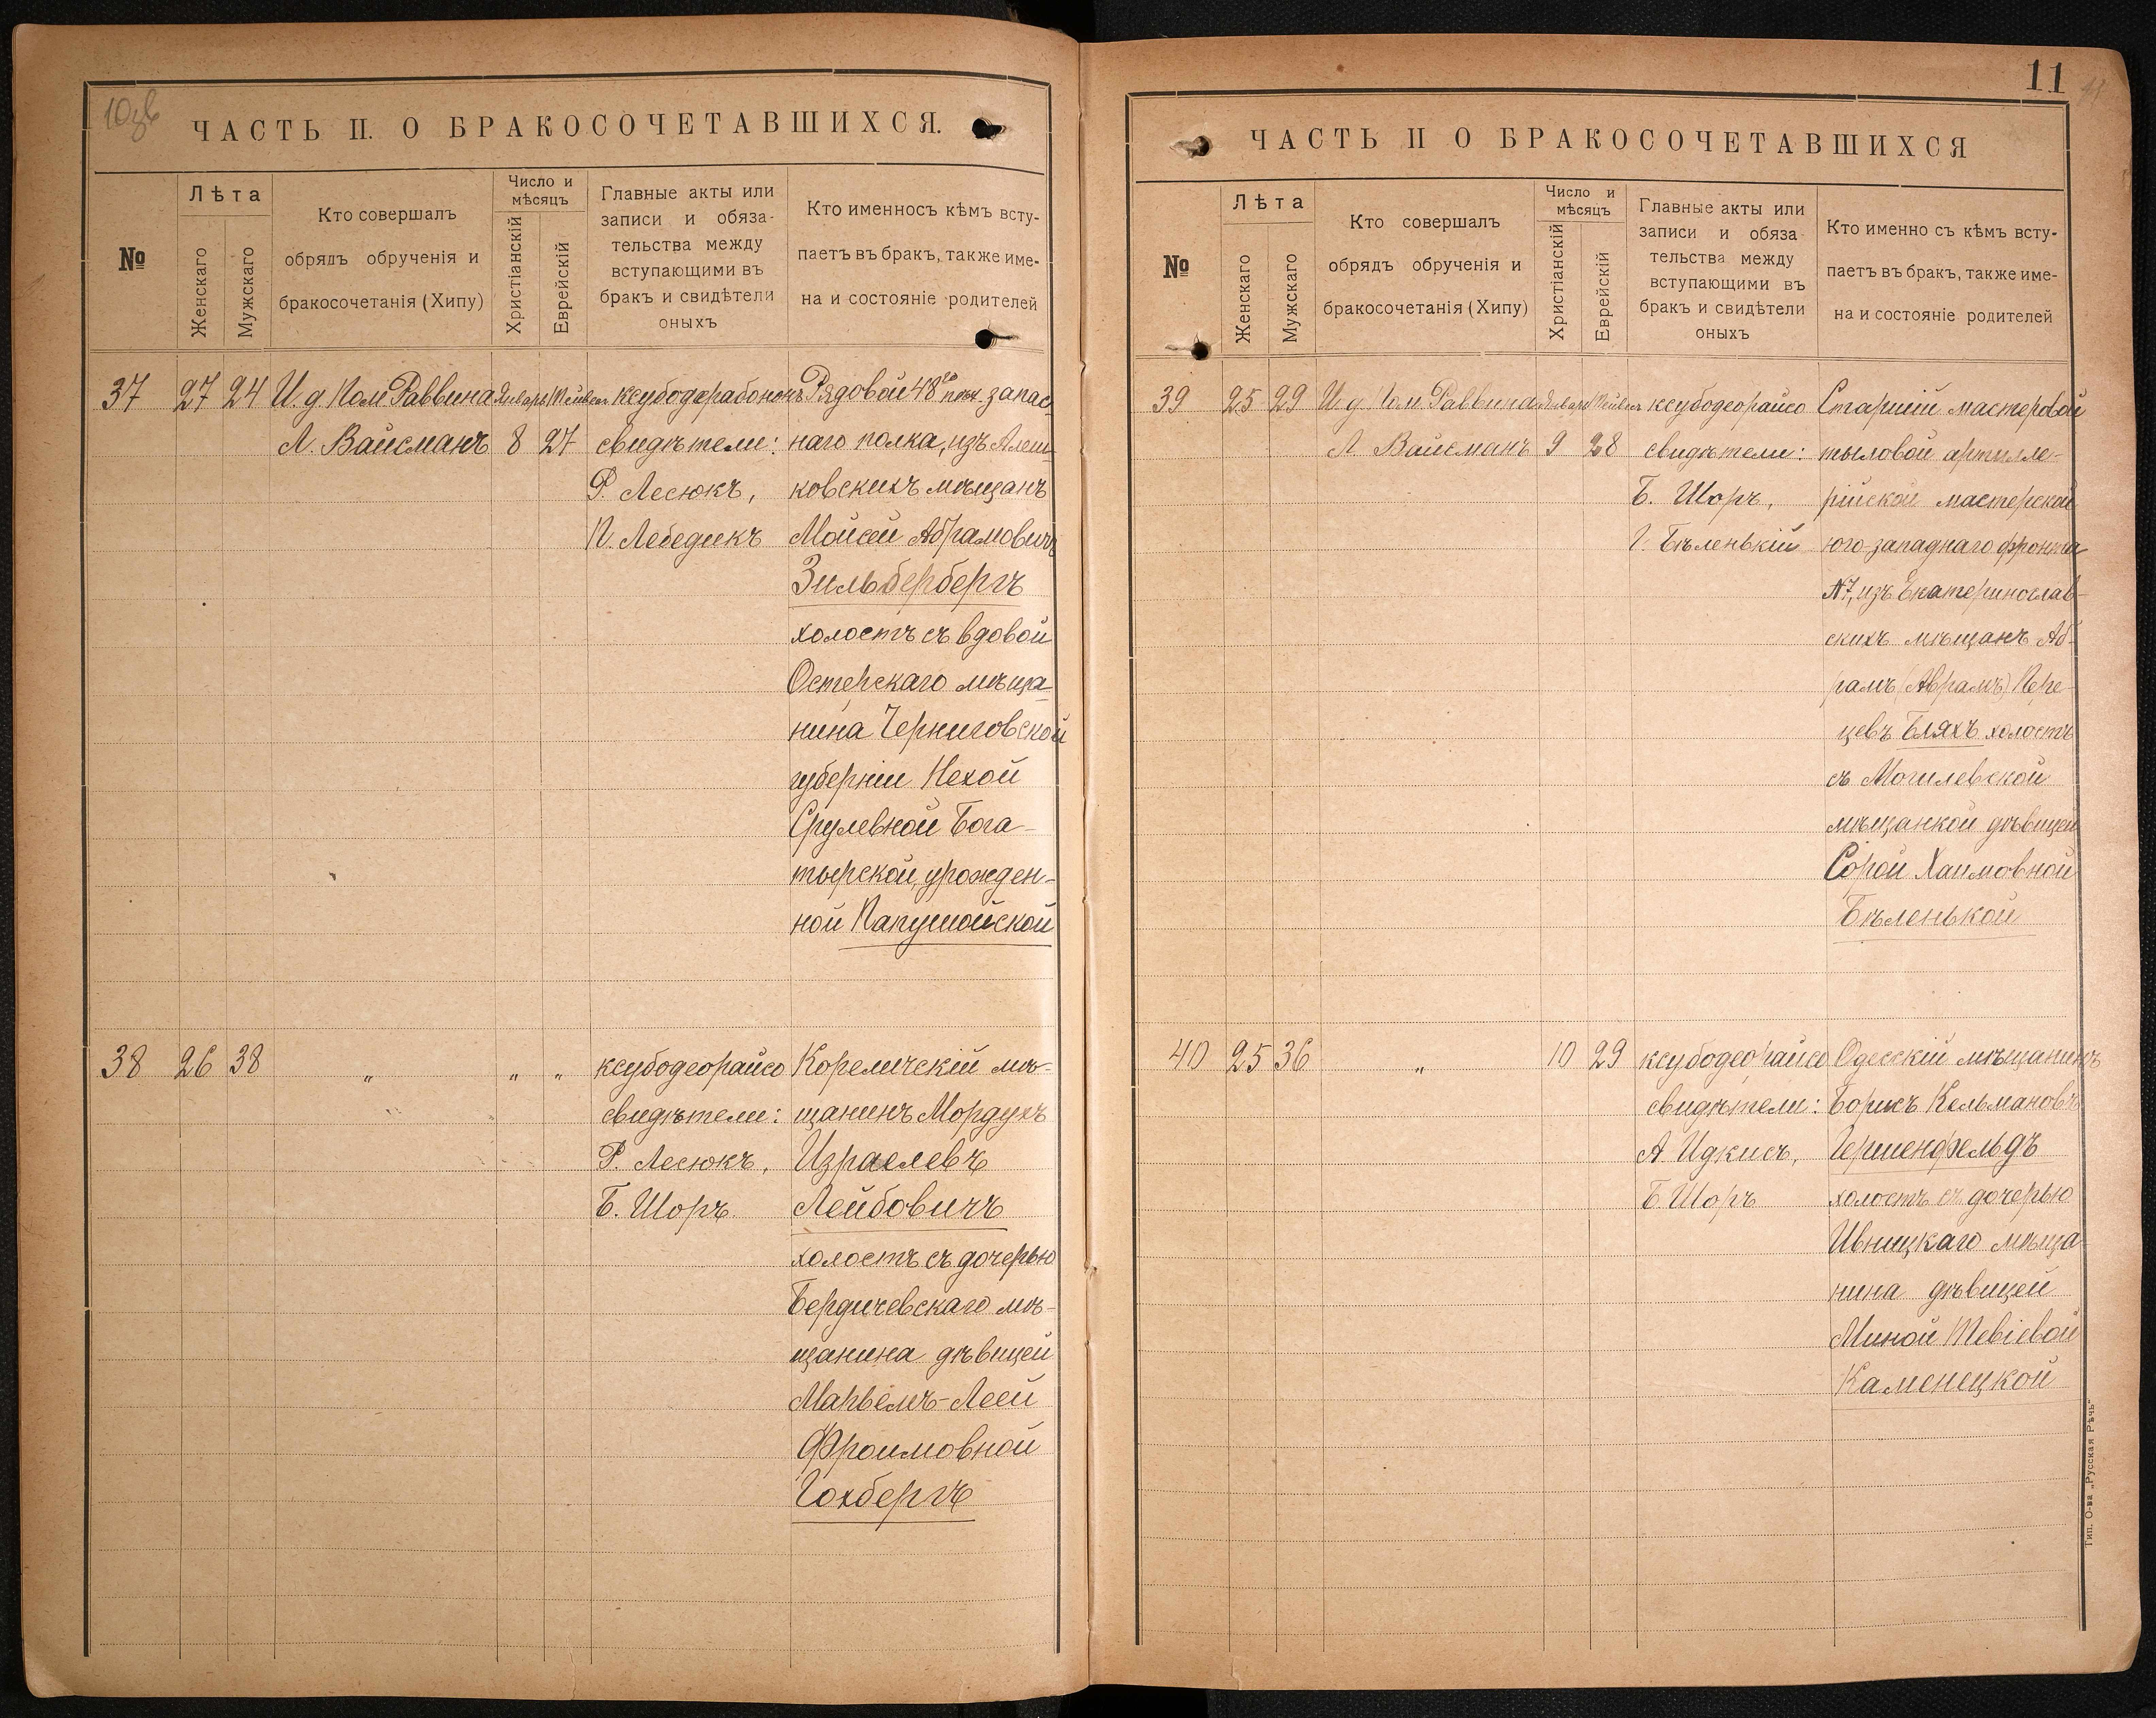 10 зв
ЧАСТЬ II. О БРАКОСОЧЕТАВШИХСЯ.
№
Лѣта
Женскаго
Мужскаго
Кто совершалъ
обрядъ обрученія и
бракосочетанія (Хипу)
Число и
мѣсяцъ
Христіанскій
Еврейскій
Главные акты или
записи и обяза-
тельства между
вступающими въ
бракъ и свидѣтели
оныхъ
Кто именносъ кѣмъ всту-
паетъ въ бракъ, также име-
на и состояніе родителей
37 27 24
И. д. Пом Раввина
Л. Вайсманъ
Январь
8 27
свидѣтели:
Р. Лесюкъ,
П. Лебедикъ
Рядовой 48го пѣх. запас-
наго полка, изъ Алеш-
ковскихъ мѣщанъ
Мойсей Абрамовичъ
Зильбербергъ
холостъ съ вдовой
Остерскаго мѣща-
нина Черниговской
губерніи Нехой
Срулевной Бога-
тырской, урожден-
ной Папушойской
38 26 38 " " "
ксубодеорайсо
свидѣтели:
Р. Лесюкъ,
Б. Шоръ
Кореличскій мѣ-
щанинъ Мордухъ
Израелевъ
Лейбовичъ
холостъ съ дочерью
Бердичевскаго мѣ-
щанина дѣвицей
Марьемъ-Леей
Фроимовной
Гохбергъ
11
ЧАСТЬ II О БРАКОСОЧЕТАВШИХСЯ
№
Лѣта
Женскаго
Мужскаго
Кто совершалъ
обрядъ обрученія и
бракосочетанія (Хипу)
Число и
мѣсяцъ
Христіанскій
Еврейскій
Главные акты или
записи и обяза-
тельства между
вступающими въ
бракъ и свидѣтели
оныхъ
Кто именно съ кѣмъ всту-
паетъ въ бракъ, также име-
на и состояніе родителей
39 25 29
И. д. Пом. Раввина
Л. Вайсманъ
Январь
9 28
ксубодеорайсо
свидѣтели:
Б. Шоръ,
Г. Бѣленькій
Старшій мастеровой
тыловой артилле-
рійской мастерской
юго-западнаго фронта
№7, изъ Екатеринослав-
скихъ мѣщанъ Аб-
рамъ (Аврамъ) Пере-
цевъ Бляхъ холостъ
съ Могилевской
мѣщанкой дѣвицей
Сорой Хаимовной
Бѣленькой
40 25 36 " 10 29
ксубодеорайсо
свидѣтели:
А Идкисъ,
Б. Шоръ
Одесскій мѣщанинъ
Борисъ Кельмановъ
Гершенфельдъ
холостъ съ дочерью
Ивницкаго мѣща-
нина дѣвицей
Миной Тевіевой
Каменецкой
Тип. О-ва „Русская Рѣчь"